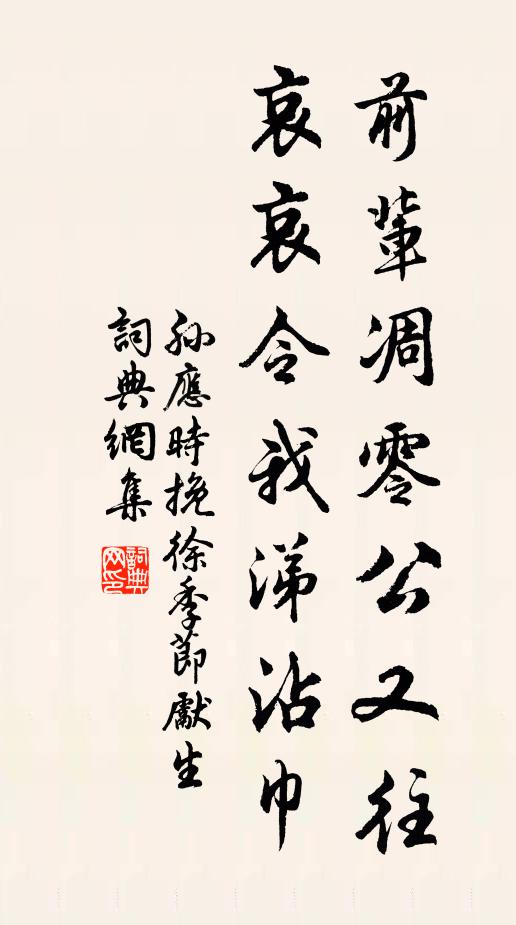 前輩凋零公又往
哀哀令我涕沾巾
孫應時挽徐季節獻生
詞典網集
詞典網印